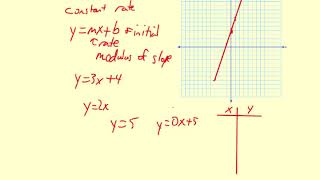 constant rate
y=mx+b ← initial
rate
modulus of slope
y=3x+4
y=2x
y=5 y=0x+5
x y